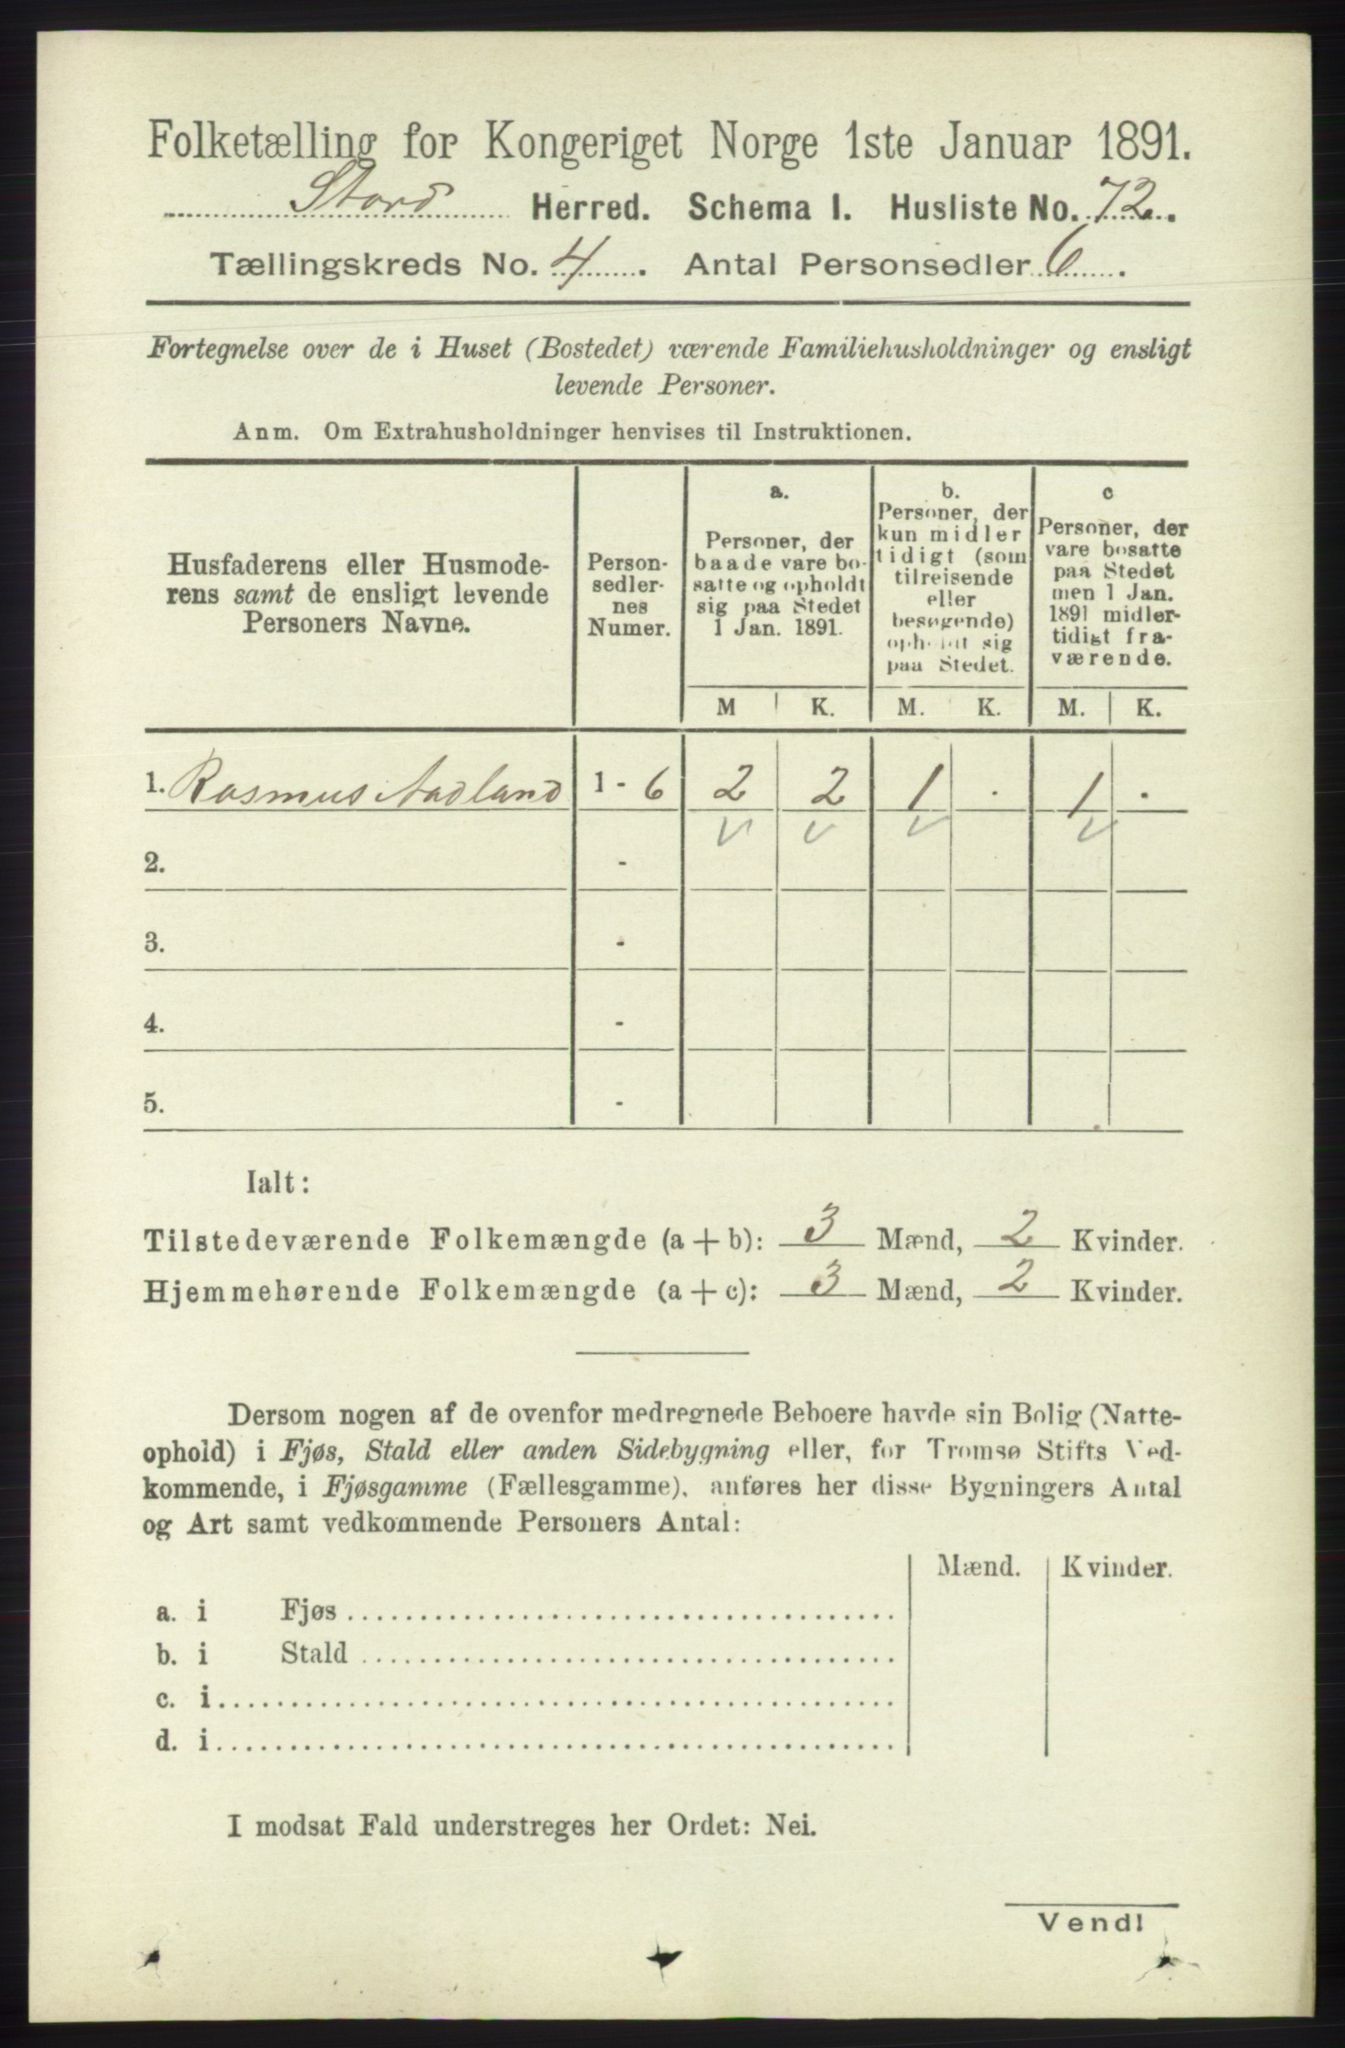 Folketælling for Kongeriget Norge 1ste Januar 1891.
Stord Herred. Schema I. Husliste No. 72.
Tællingskreds No. 4. Antal Personsedler 6.
Fortegnelse over de i Huset (Bostedet) værende Familiehusholdninger og ensligt
levende Personer.
Anm. Om Extrahusholdninger henvises til Instruktionen.
Husfaderens eller Husmode-
rens samt de ensligt levende
Personers Navne.
Person-
sedler-
nes
Numer.
a.
Personer, der
baade vare bo-
satte og opholdt
sig paa Stedet
1 Jan. 1891.
b.
Personer, der
kun midler
tidigt (som
tilreisende
eller
besøgende)
opholdt sig
paa Stedet.
c
Personer, der
vare bosatte
paa Stedet
men 1 Jan.
1891 midler-
tidigt fra-
værende.
M K. M. K. M. K.
1. Rasmus Aadland 1 - 6 2 2 1 . 1 -
2. -
3. -
4. -
5. -
Ialt:
Tilstedeværende Folkemængde (a + b): 3 Mænd, 2 Kvinder.
Hjemmehørende Folkemængde (a + c): 3 Mænd, 2 Kvinder.
Dersom nogen af de ovenfor medregnede Beboere havde sin Bolig (Natte-
ophold) i Fjøs, Stald eller anden Sidebygning eller, for Tromsø Stifts Ved-
kommende, i Fjøsgamme (Fællesgamme), anføres her disse Bygningers Antal
og Art samt vedkommende Personers Antal:
Mænd. Kvinder.
a. i Fjøs
b. i Stald
c. i
d. i
I modsat Fald understreges her Ordet: Nei.
Vend!